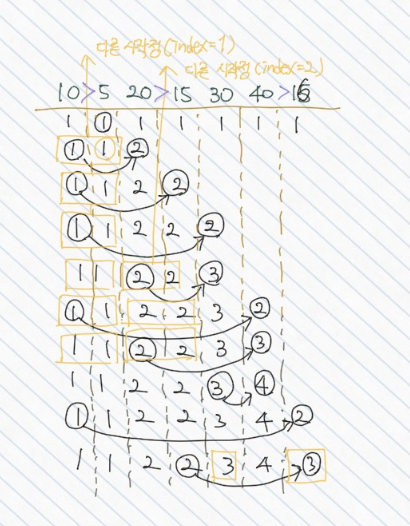 다른 시작점 (index=1)
다른 시작점 (index=2)
10 > 5 20 > 15 30 40 > 16
1 1 1 1 1 1 1
1 1 2
1 1 2 2
1 1 2 2 2
1 1 2 2 3
1 1 2 2 3 2
1 1 2 2 3 3
1 1 2 2 3 4
1 1 2 2 3 4 2
1 1 2 2 3 4 3